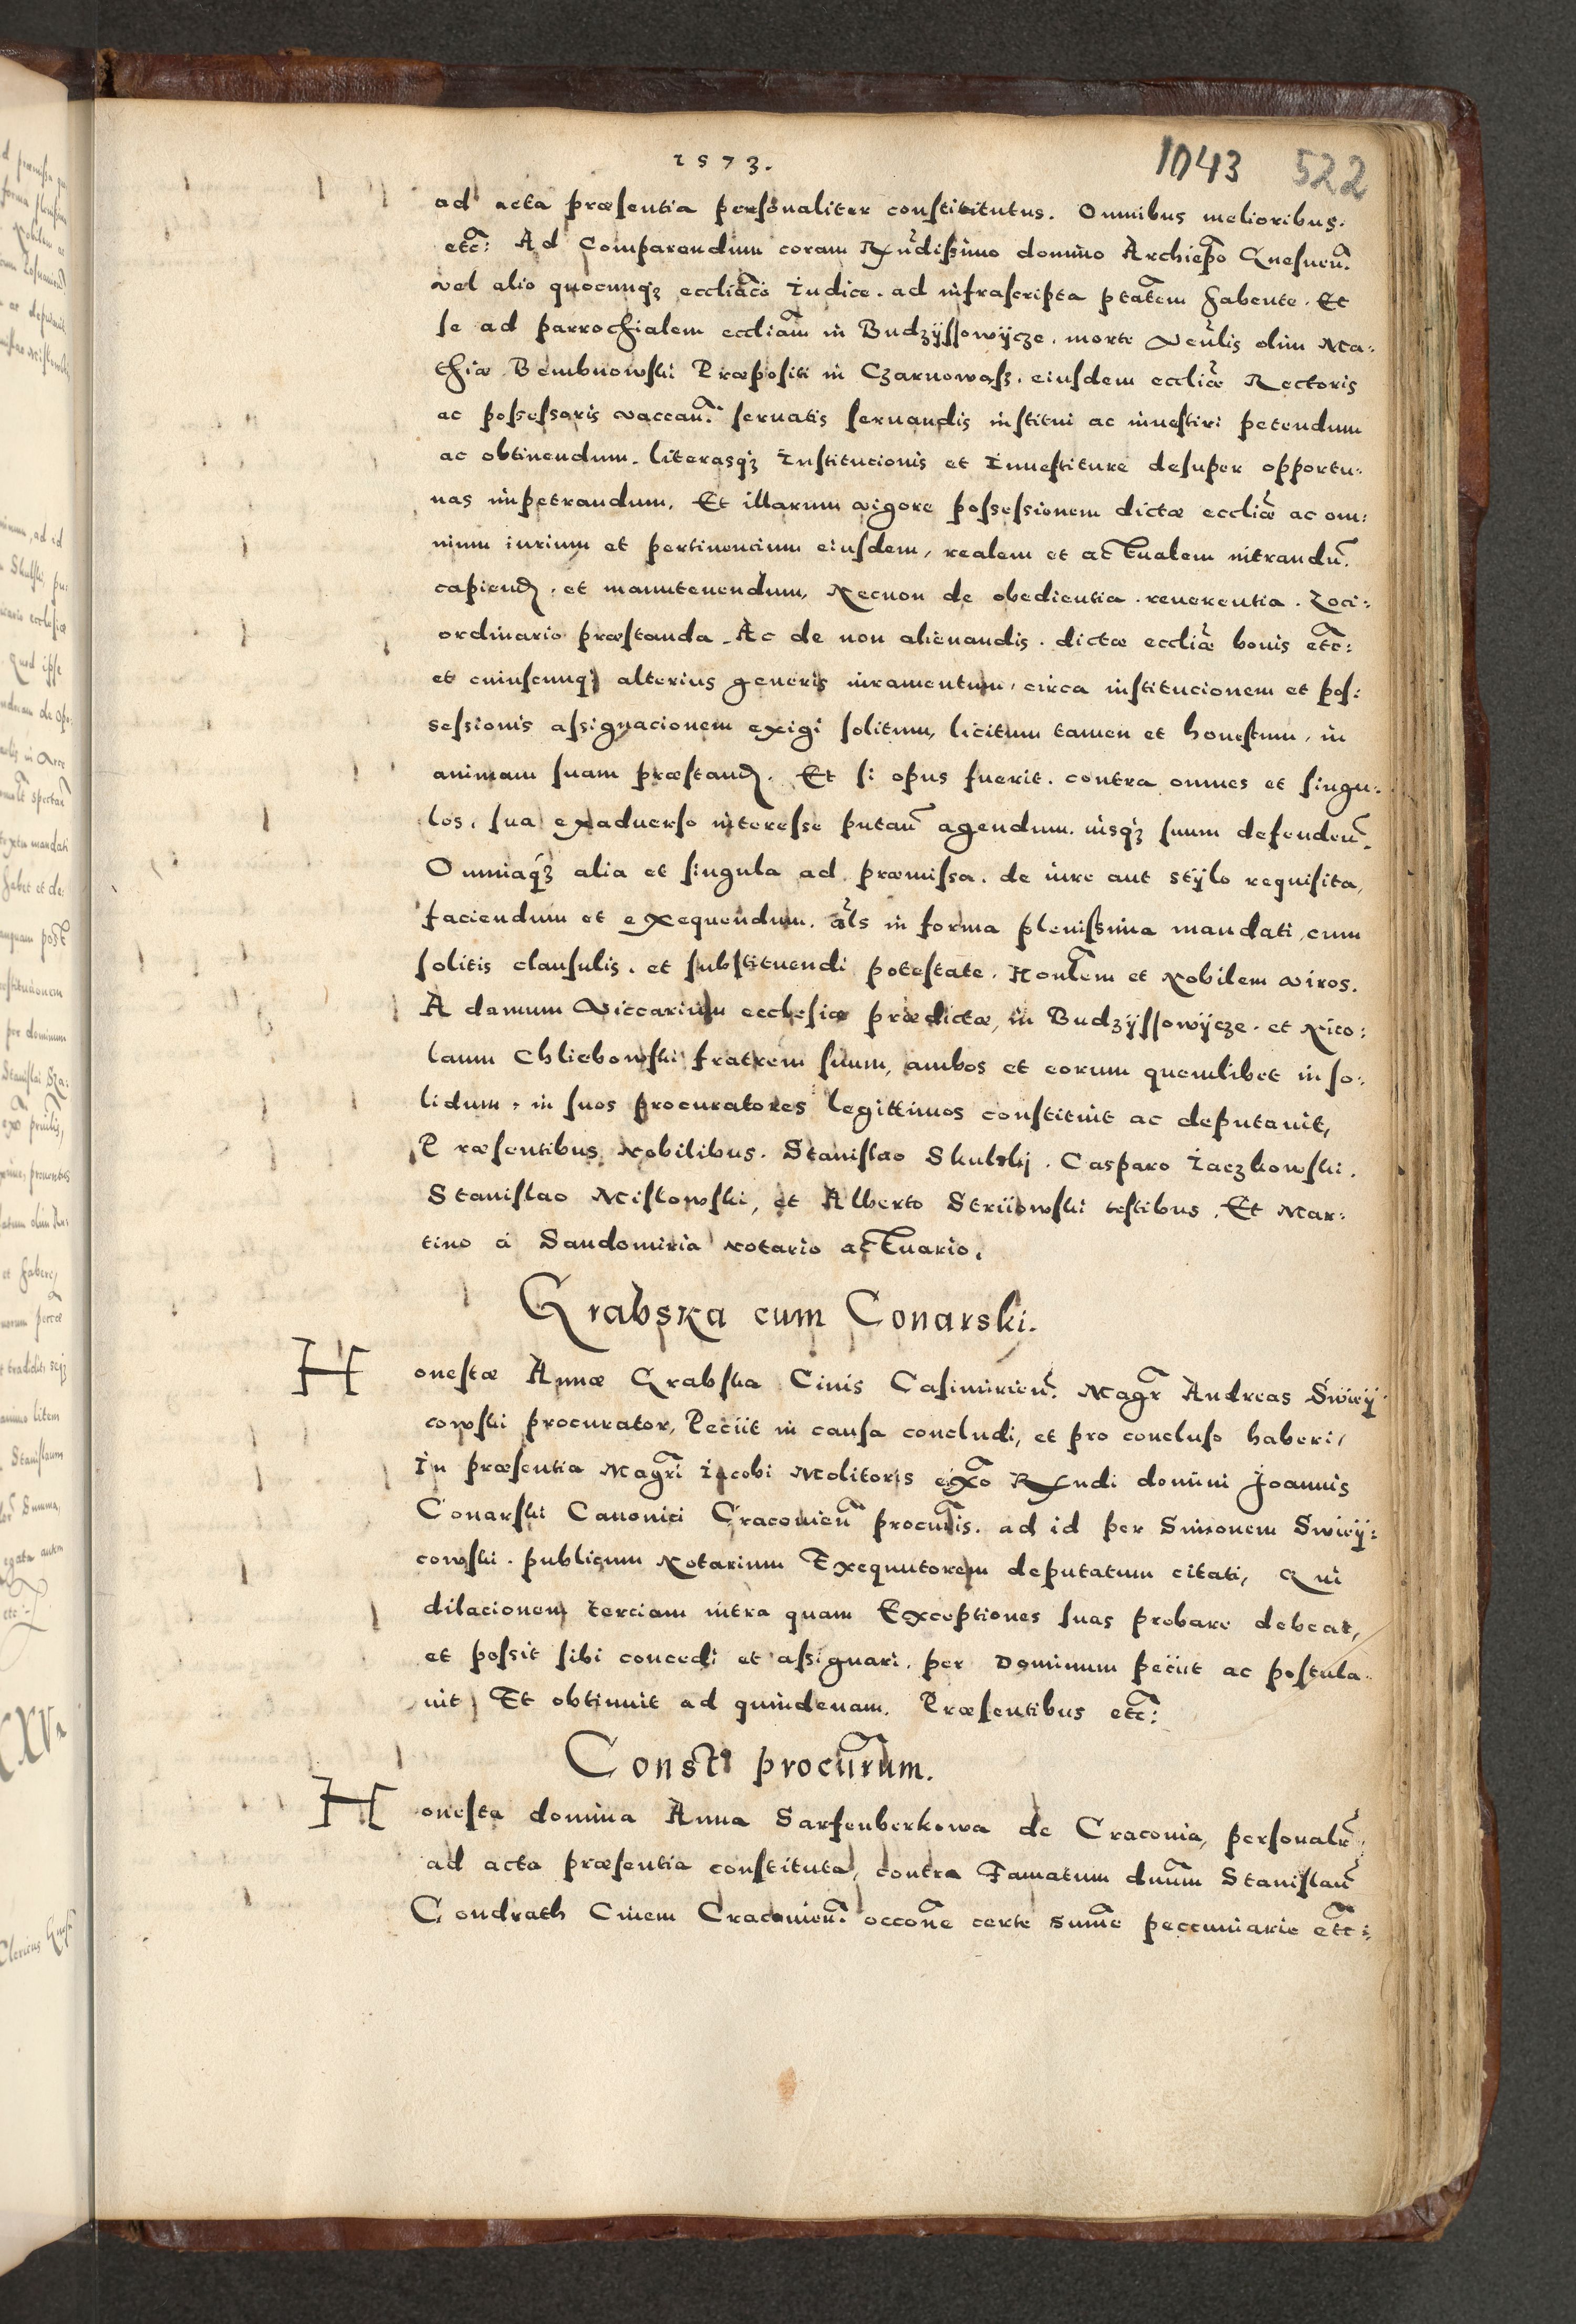 1573.
1043 522
ad acta præsentia personaliter constititutus. Omnibus melioribus.
etc: Ad Comparendum coram Rndissimo domino Archiepo Gnesnen.
vel alio quocunqz eccliaco Iudice. ad infrascripta ptatem habente. Et
se ad parrochialem eccliam in Budzÿssowÿcze. morte venlis olim Ma:
thiæ Bembnowski Præpositi in Czarnowasz. eiusdem eccliæ Rectoris
ac possessoris vaccan. servatis servandis institui ac investiri petendum
ac obtinendum. literasqz Institucionis et Investiture desuper opportu:
nas impetrandum. Et illarum vigore possessionem dictæ eccliæ ac om:
nium iurium et pertinencium eiusdem, realem et actualem intrandu.
capiend. et manutenendum, Necnon de obedientia. reverentia. Loci:
ordinario præstanda. Ac de non alienandis. dictæ eccliæ bonis etc:
et cuiuscunqz alterius generis iuramentum, circa institucionem et pos:
sessionis assignacionem exigi solitum, licitum tamen et honestum, in
animam suam præstand. Et si opus fuerit. contra omnes et singu:
los, sua exadverso interesse putan agendum. iusqz suum defenden.
Omniaqz alia et singula ad præmissa. de iure aut stÿlo requisita,
faciendum et exequendum. als in forma plenissima mandati, cum
solitis clausulis. et substituendi potestate. Honlem et Nobilem viros.
Adamum Viccarium ecclesiæ prædictæ, in Budzÿssowÿcze. et Nico:
laum Chliebowski fratrem suum, ambos et eorum quemlibet in so:
lidum, in suos procuratores legittimos constituit ac deputavit,
Præsentibus Nobilibus. Stanislao Skulskÿ. Casparo Iaczkowski.
Stanislao Mislowski, et Alberto Striiowski testibus. Et Mar:
tino á Sandomiria Notario actuario.
Grabska cum Conarski.
Honestæ Annæ Grabska Civis Casimirien. Magr Andreas Swicÿ
cowski procurator, Peciit in causa concludi, et pro concluso haberi,
In præsentia Magri Iacobi Molitoris exo Rndi domini Joannis
Conarski Canonici Cracovien procuris. ad id per Simonem Swicÿ:
cowski. publicum Notarium Exequutorem deputatum citati, Qui
dilacionem terciam intra quam Exceptiones suas probare debeat,
et possit sibi concedi et assignari. per Dominum peciit ac postula.
vit, Et obtinuit ad quindenam. Præsentibus etc:
Consto procurum.
Honesta domina Anna Sarfenberkowa de Cracovia, personalr
ad acta præsentia constituta, contra Famatum dnum Stanislau
Condrath Civem Cracovien. occone certe sume peccuniarie etc: